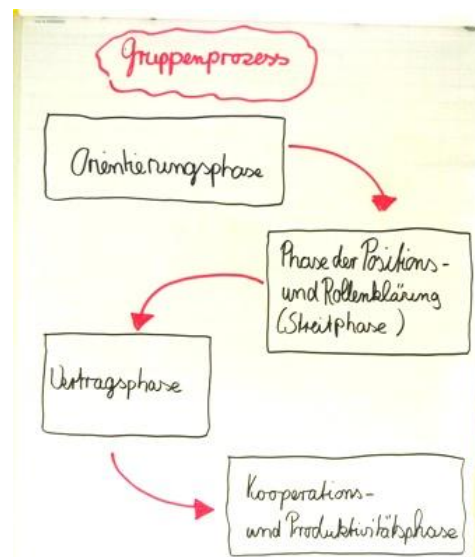 Gruppenprozess
Orientierungsphase
Phase der Positions-
und Rollenklärung
(Streitphase)
Vertragsphase
Kooperations-
und Produktivitätsphase